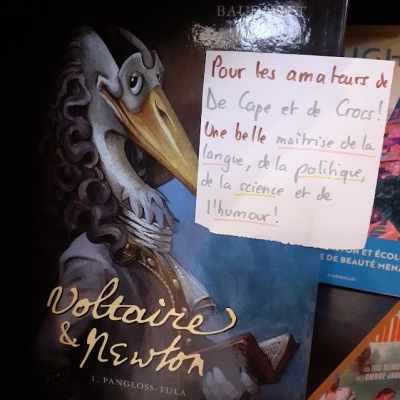 Pour les amateurs de
De Cape et de Crocs!
Une belle maîtrise de la
langue, de la politique,
de la science et de
l'humour!
Voltaire
& Newton
1. PANGLOSS-TULA
DE BEAUTÉ
DARGAUD